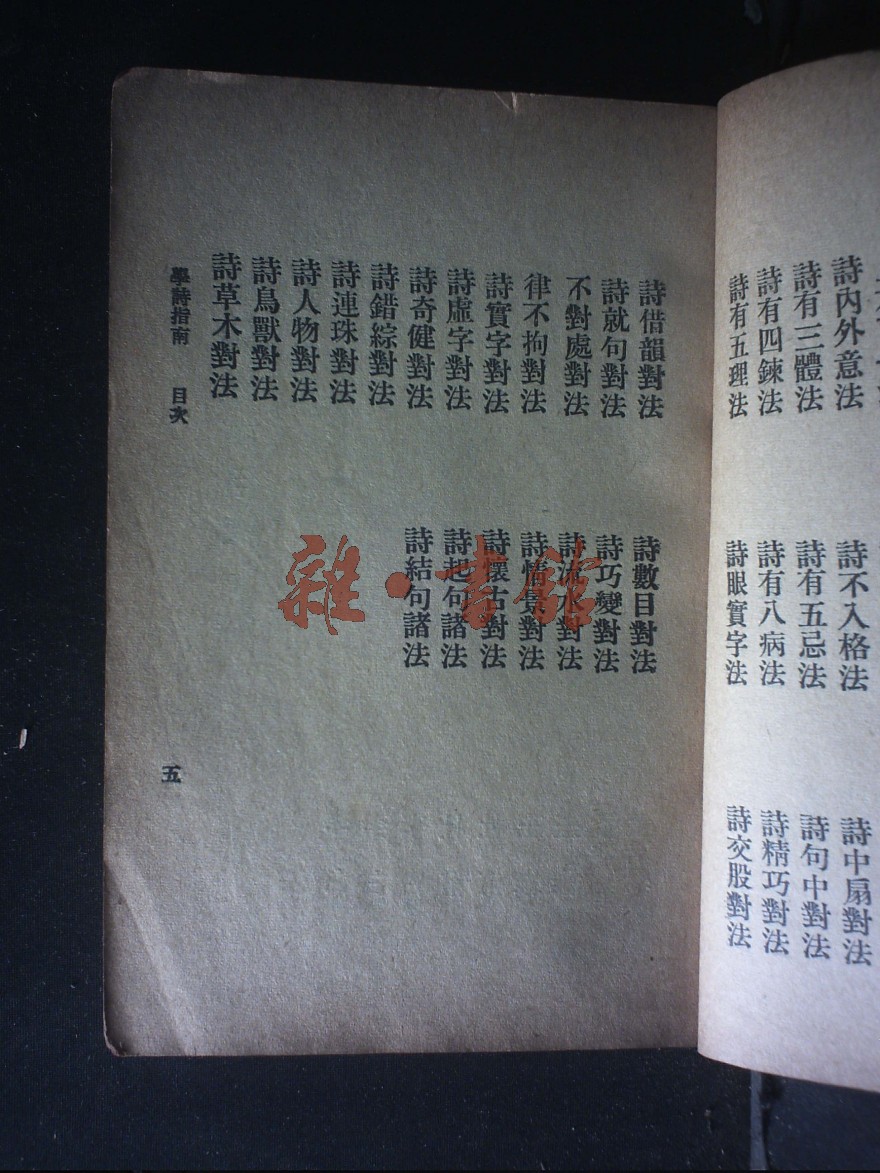 詩內外意法
詩有三體法
詩有四鍊法
詩有五理法
詩不入格法
詩有五忌法
詩有八病法
詩眼實字法
詩中扇對法
詩句中對法
詩精巧對法
詩交股對法
詩借韻對法
詩就句對法
不對處對法
律不拘對法
詩實字對法
詩虛字對法
詩奇健對法
詩錯綜對法
詩連珠對法
詩人物對法
詩鳥獸對法
詩草木對法
詩數目對法
詩巧變對法
詩流水對法
詩情景對法
詩懷古對法
詩起句諸法
詩結句諸法
學詩指南 目次
五
雜·書館